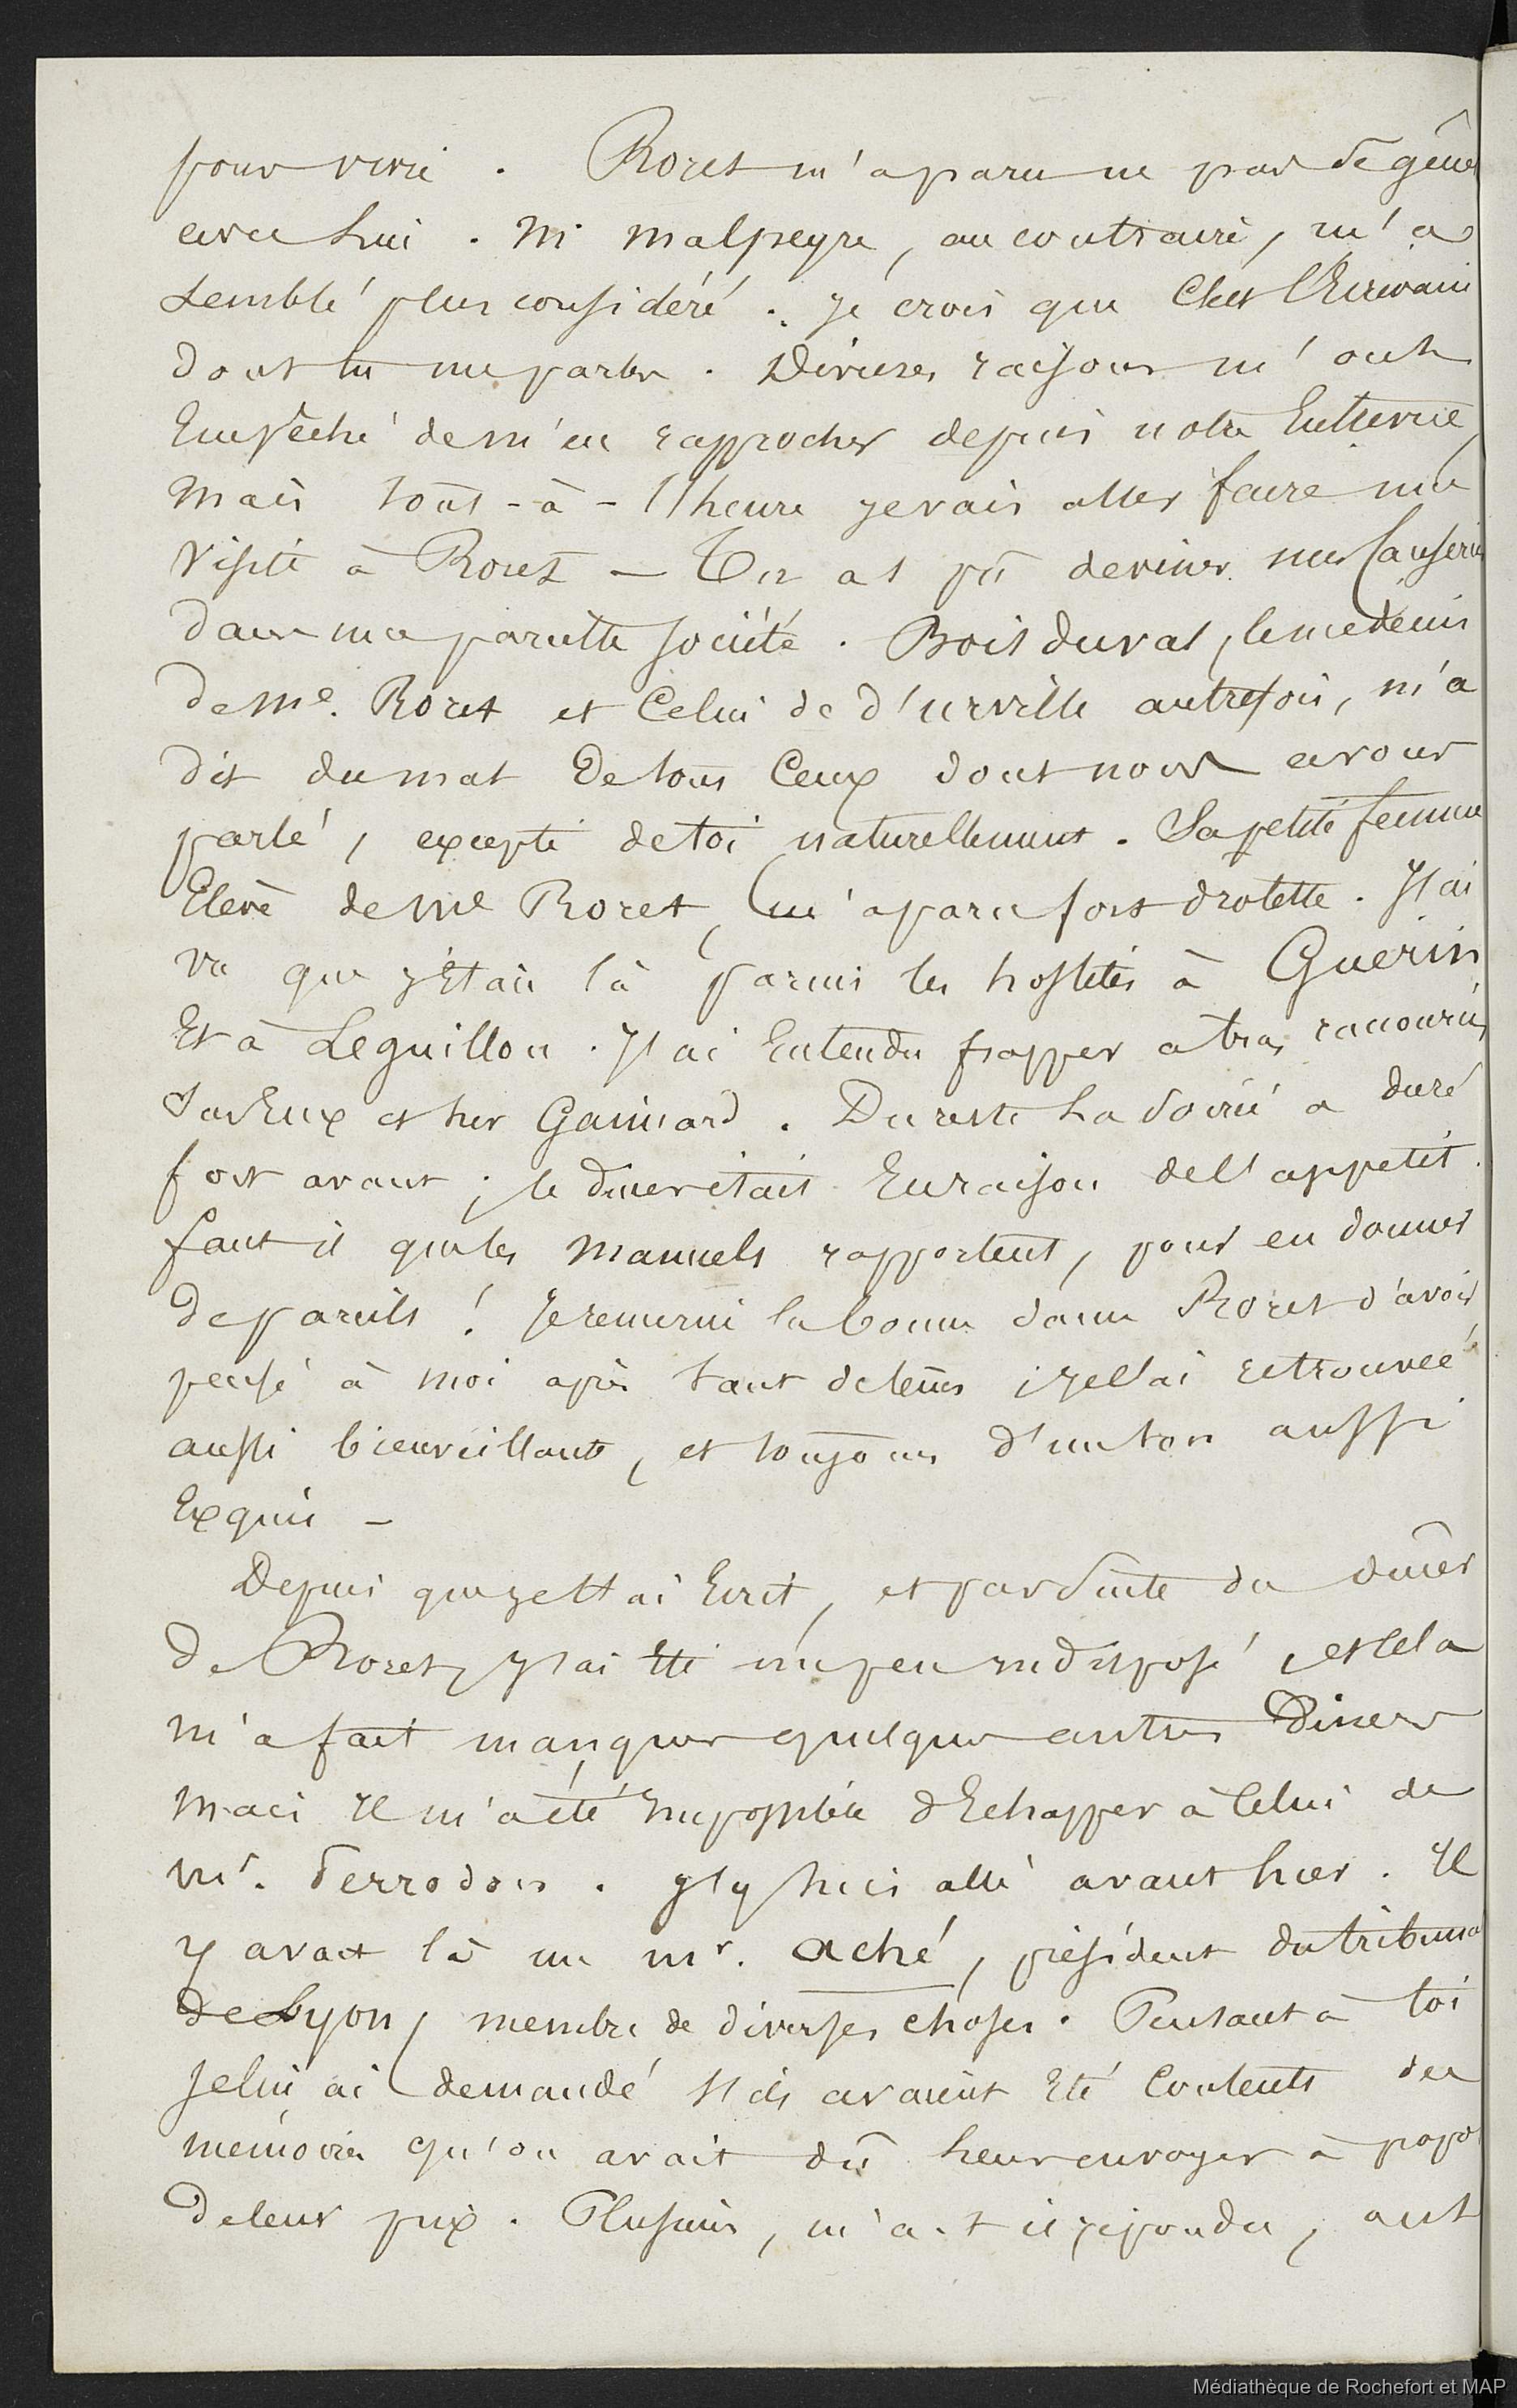 pour vivre. Roret m'a paru ne pas se gêner
avec lui. M. Malpeyre, au contraire, m'a
semblé plus considéré. Je crois que c'est l'Ecrivain
dont tu me parles. Diverses raisons m'ont
Empêché de m'en rapprocher depuis notre Entrevue,
Mais tout-à-l'heure je vais aller faire ma
Visite à Roret — Tu as pû deviner nos Causeries
dans une pareille société. Boisduval, le medecin
de Me. Roret et Celui de d'urville autrefois, m'a
dit du mal de tous Ceux dont nous avons
parlé, excepté de toi naturellement. Sa petite femme
Elève de Me Roret, m'a paru fort drolette. J'ai
vu que j'Etais là parmi les hostiles à Guerin
Et à Leguillou. J'ai Entendu frapper à bras raccourcis
sur Eux et sur Gaimard. Du reste La soirée a duré
fort avant; le diner était En raison de l'appetit.
faut il que les Manuels rapportent, pour en donner
de pareils! Je remercie la bonne dame Roret d'avoir
pensé à moi après tant de tems; je l'ai retrouvée
aussi bienveillante, et toujours d'un ton aussi
Exquis —
Depuis que je t'ai Ecrit, et par suite du dîner
de Roret, j'ai Eté un peu indisposé, et Cela
m'a fait manquer quelques autres Diners
mais Il m'a été Impossible d'Echapper à Celui de
Mr. Terrodon. J'y suis allé avant hier. Il
y avait là un Mr. Aché, président du tribunal
de Lyon, membre de diverses choses. Pensant à toi
je lui ai demandé s'ils avaient Eté Contents des
mémoires qu'on avait dû leur envoyer à propos
de leur prix. Plusieurs, m'a-t il répondu, ont